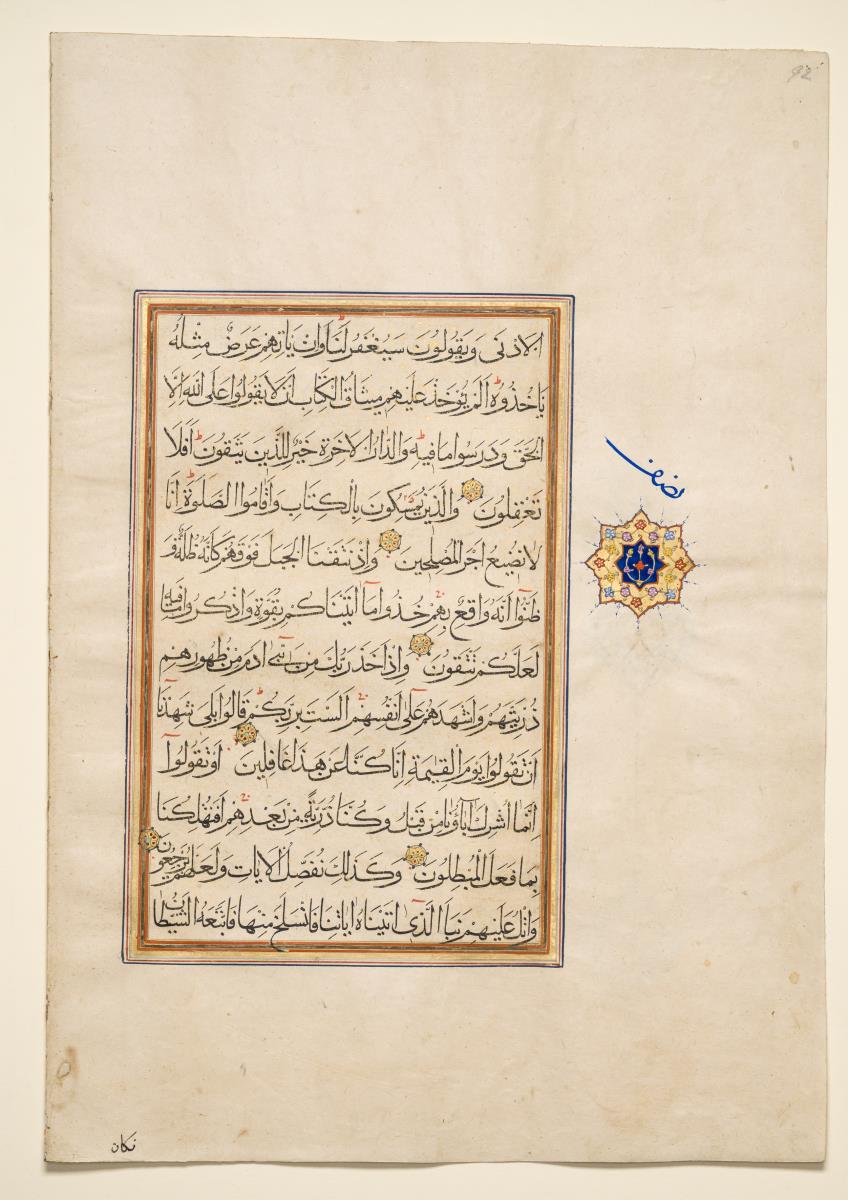 الادنى ويقولون سيغفر لنا وان ياتهم عرض مثله
ياخذوه الم يؤخذ عليهم ميثاق الكتاب ان لا يقولوا على الله الا
الحق ودرسوا ما فيه والدار الاخرة خير للذين يتقون افلا
تعقلون والذين يمسكون بالكتاب واقاموا الصلوة انا
لا نضيع اجر المصلحين واذ نتقنا الجبل فوقهم كانه ظلة و
ظنوا انه واقع بهم خذوا ما اتيناكم بقوة واذكروا ما فيه
لعلكم تتقون واذ اخذ ربك من بني ادم من ظهورهم
ذريتهم واشهدهم على انفسهم الست بربكم قالوا بلى شهدنا
ان تقولوا يوم القيمة انا كنا عن هذا غافلين او تقولوا
انما اشرك اباؤنا من قبل وكنا ذرية من بعدهم افتهلكنا
بما فعل المبطلون وكذلك نفصل الايات ولعلهم يرجعون
واتل عليهم نبا الذي اتيناه اياتنا فانسلخ منها فاتبعه الشيطان
نصف
فكان
92